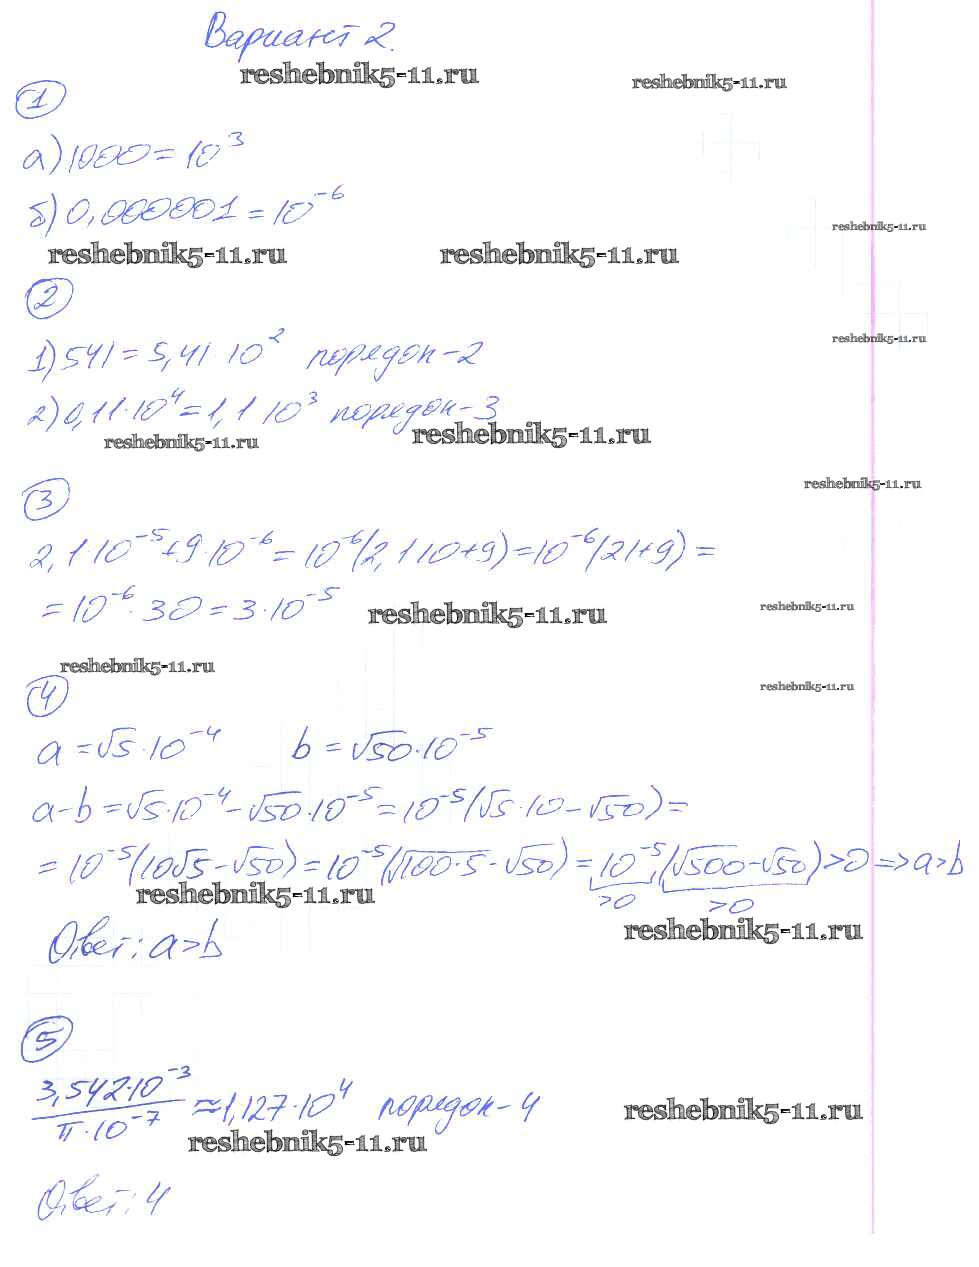 Вариант 2.
reshebnik5-11.ru
reshebnik5-11.ru
1
а) 1000 = 10³
б) 0,000001 = 10⁻⁶
reshebnik5-11.ru
reshebnik5-11.ru
reshebnik5-11.ru
2
1) 541 = 5,41·10² порядок-2
reshebnik5-11.ru
2) 0,11·10⁴ = 1,1·10³ порядок-3
reshebnik5-11.ru
reshebnik5-11.ru
3
reshebnik5-11.ru
2,1·10⁻⁵+9·10⁻⁶ = 10⁻⁶(2,1·10+9) = 10⁻⁶(21+9) =
= 10⁻⁶·30 = 3·10⁻⁵
reshebnik5-11.ru
reshebnik5-11.ru
reshebnik5-11.ru
4
reshebnik5-11.ru
a = √5·10⁻⁴ b = √50·10⁻⁵
a-b = √5·10⁻⁴-√50·10⁻⁵ = 10⁻⁵(√5·10-√50) =
= 10⁻⁵(10√5-√50) = 10⁻⁵(√100·5-√50) = 10⁻⁵·(√500-√50)>0 => a>b
>0 >0
reshebnik5-11.ru
Ответ: a>b
reshebnik5-11.ru
5
3,542·10⁻³
π·10⁻⁷
≈1,127·10⁴ порядок-4
reshebnik5-11.ru
reshebnik5-11.ru
Ответ: 4